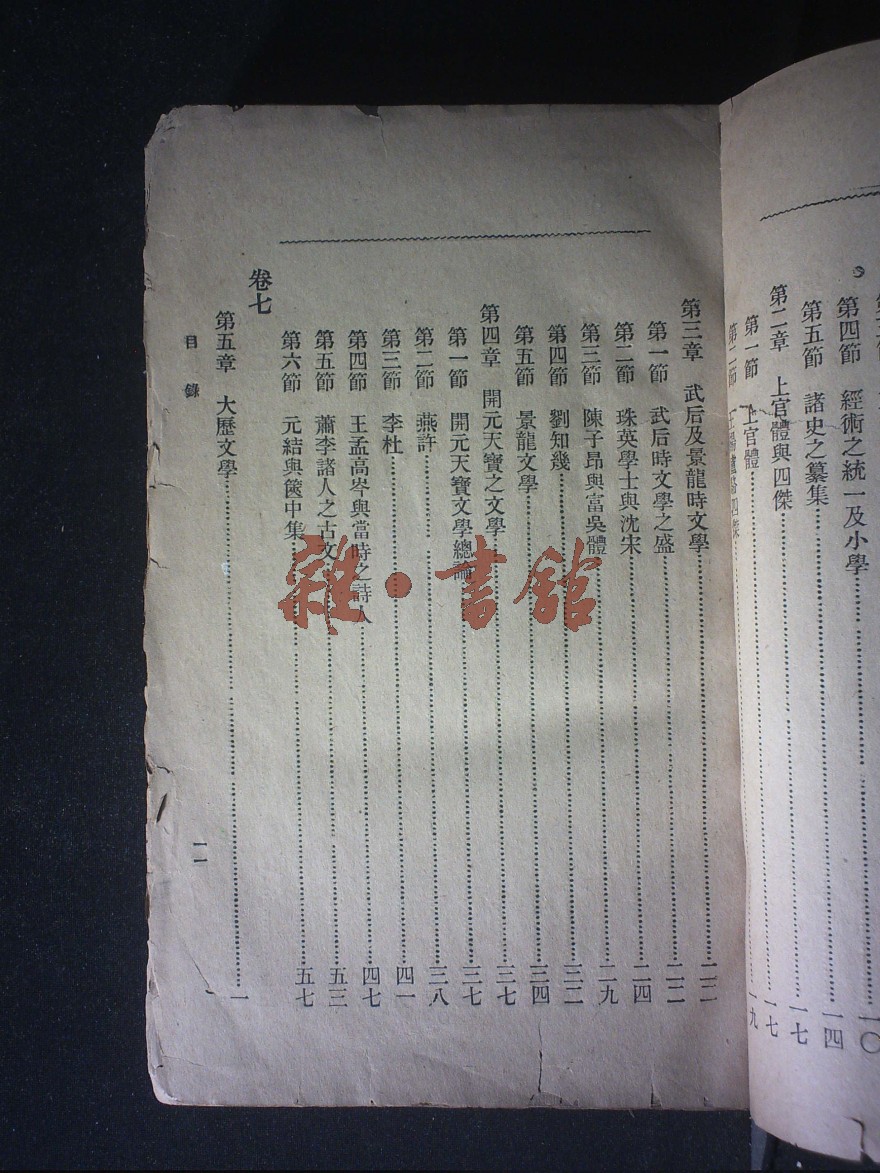 第四節 經術之統一及小學……一〇
第五節 諸史之纂集……一四
第二章 上官體與四傑……一七
第一節 上官體……一七
第二節 王楊盧駱四傑……一九
第三章 武后及景龍時文學……二二
第一節 武后時文學之盛……二二
第二節 珠英學士與沈宋……二四
第三節 陳子昂與富吳體……二九
第四節 劉知幾……三二
第五節 景龍文學……三四
第四章 開元天寶之文學……三七
第一節 開元天寶文學總論……三七
第二節 燕許……三八
第三節 李杜……四一
第四節 王孟高岑與當時之詩人……四七
第五節 蕭李諸人之古文……五三
第六節 元結與篋中集……五七
卷七
第五章 大歷文學……一
目錄 一一
雜·書館